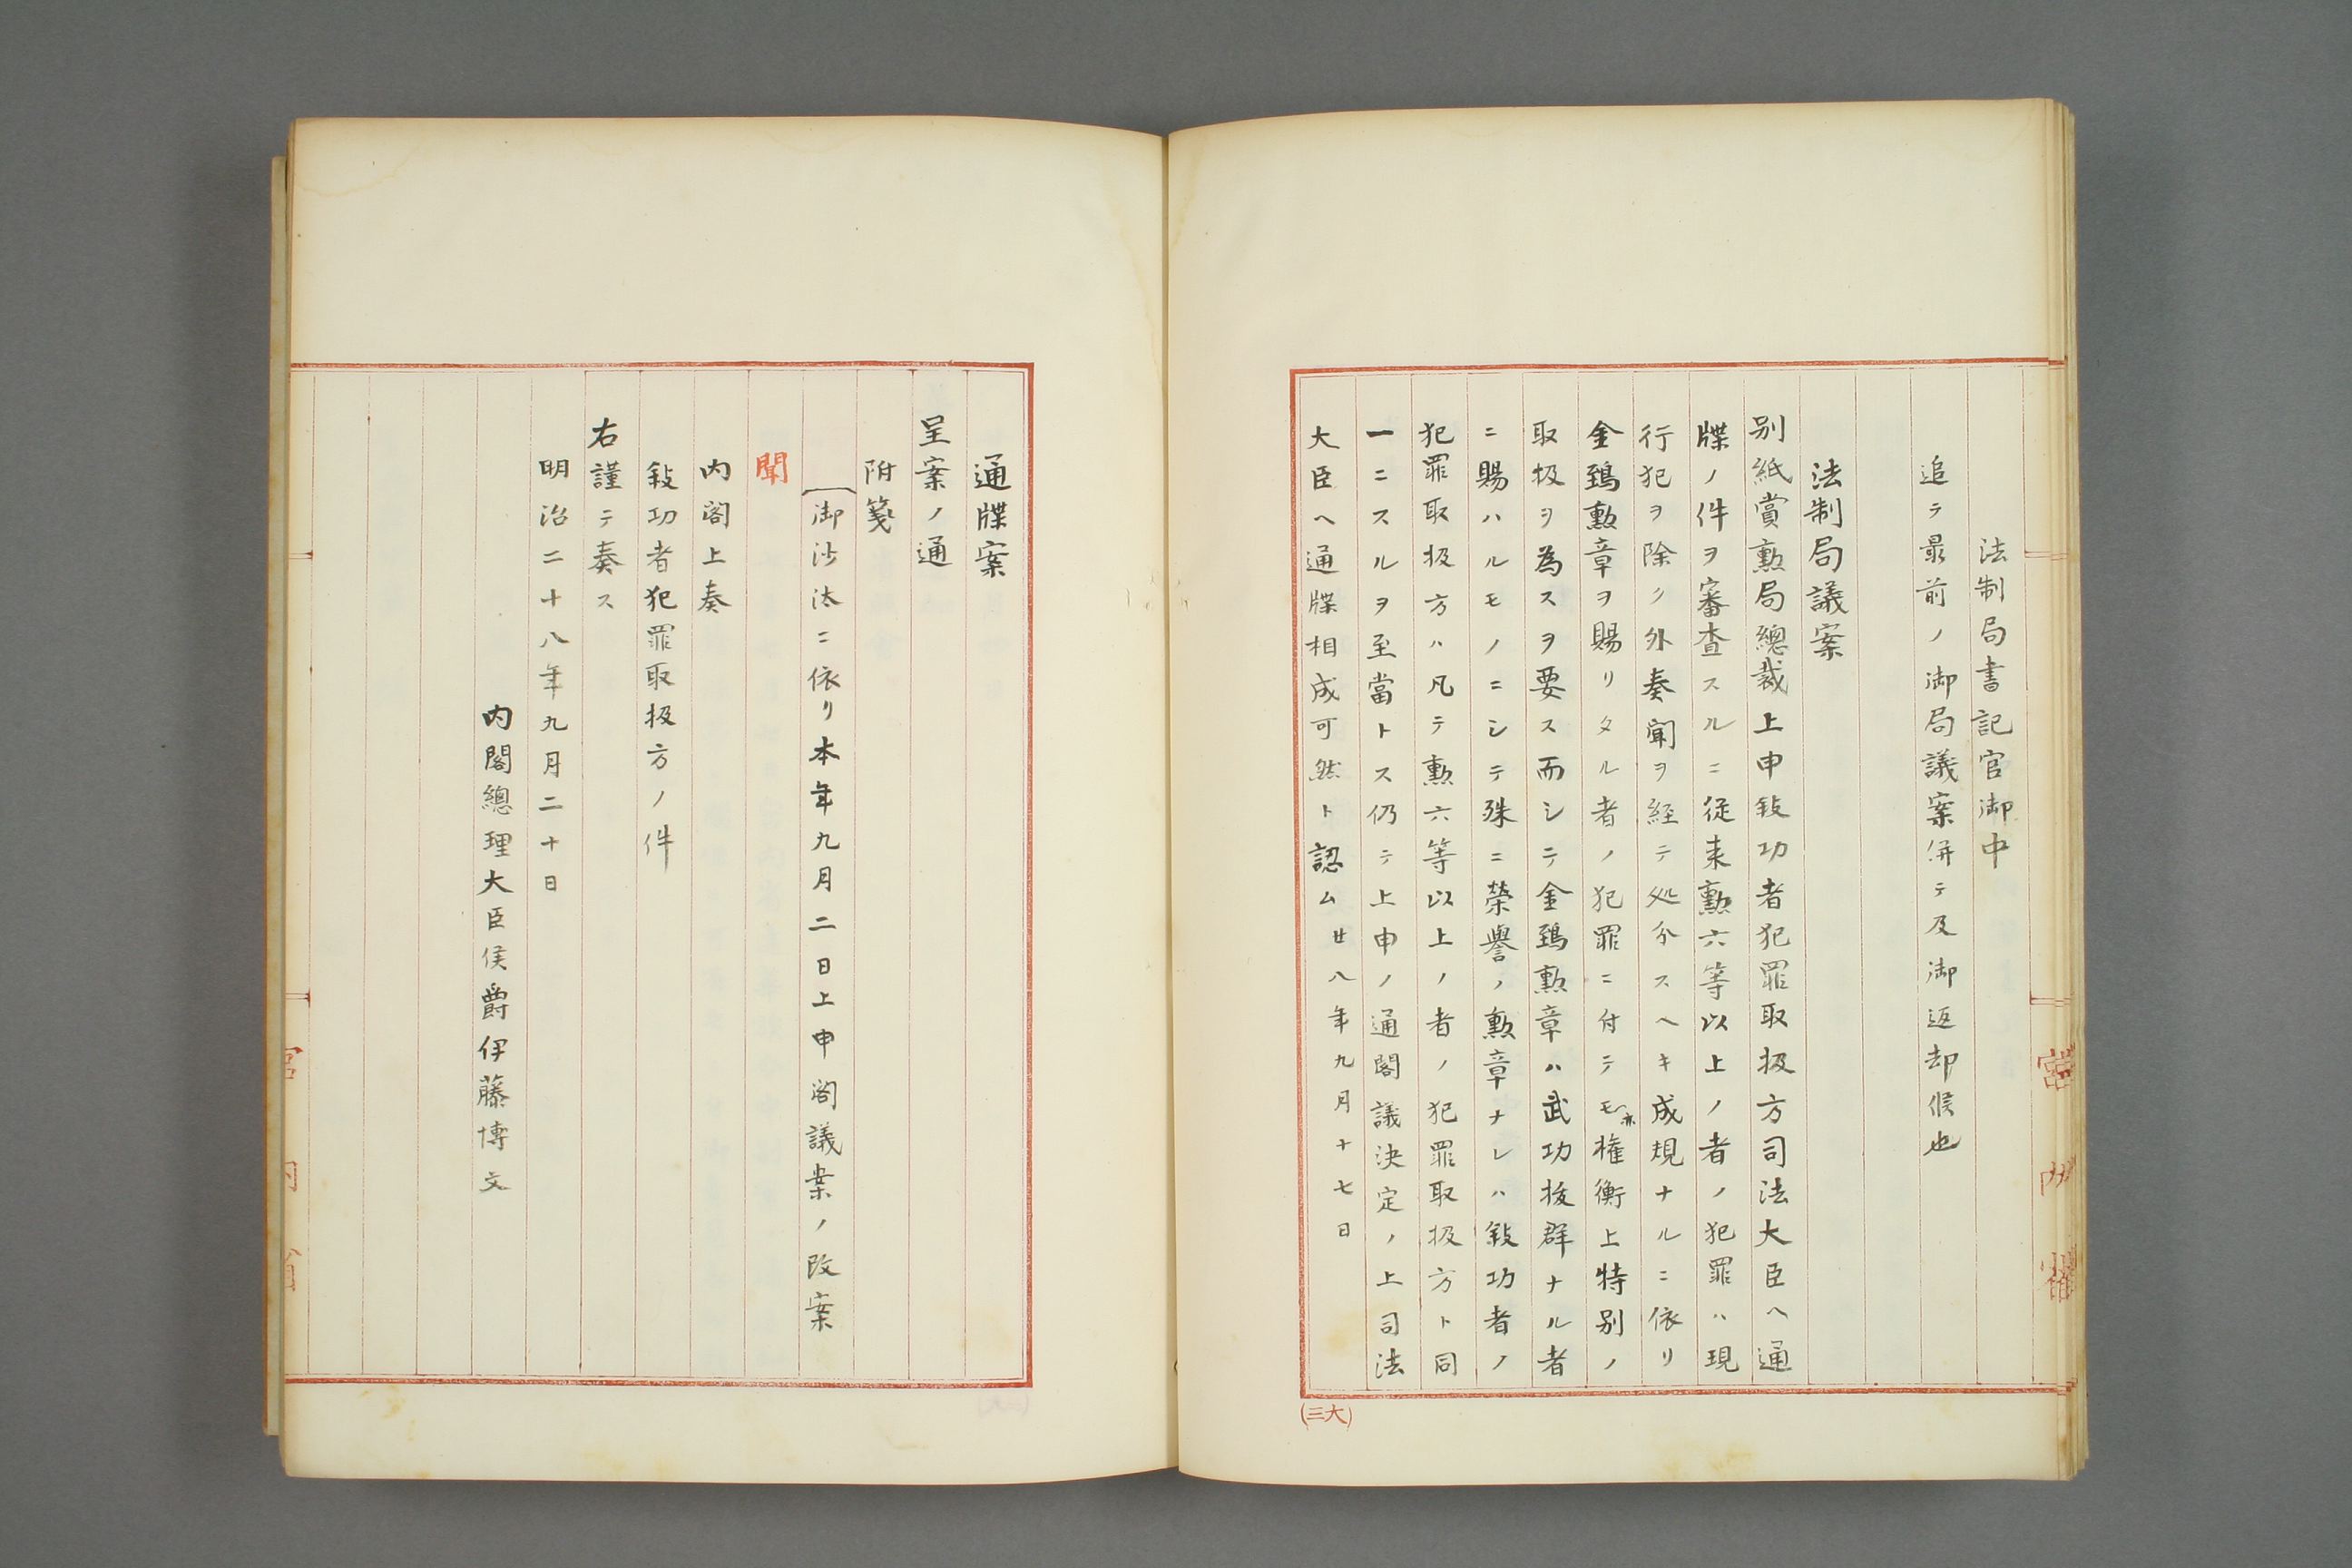 法制局書記官御中
追テ最前ノ御局議案併テ及御返却候也
法制局議案
別紙賞勲局總裁上申敍功者犯罪取扱方司法大臣ヘ通
牒ノ件ヲ審査スルニ従来勲六等以上ノ者ノ犯罪ハ現
行犯ヲ除ク外奏聞ヲ経テ処分スヘキ成規ナルニ依リ
金鵄勲章ヲ賜リタル者ノ犯罪ニ付テモ亦権衡上特別ノ
取扱ヲ為スヲ要ス而シテ金鵄勲章ハ武功抜群ナル者
ニ賜ハルモノニシテ殊ニ榮譽ノ勲章ナレハ敍功者ノ
犯罪取扱方ハ凡テ勲六等以上ノ者ノ犯罪取扱方ト同
一ニスルヲ至當トス仍テ上申ノ通閣議決定ノ上司法
大臣ヘ通牒相成可然ト認ム廿八年九月十七日
宮内省
(三大)
通牒案
呈案ノ通
附箋
(御沙汰ニ依リ本年九月二日上申閣議案ノ改案
聞
内閣上奏
敍功者犯罪取扱方ノ件
右謹テ奏ス
明治二十八年九月二十日
内閣總理大臣侯爵伊藤博文
宮内省